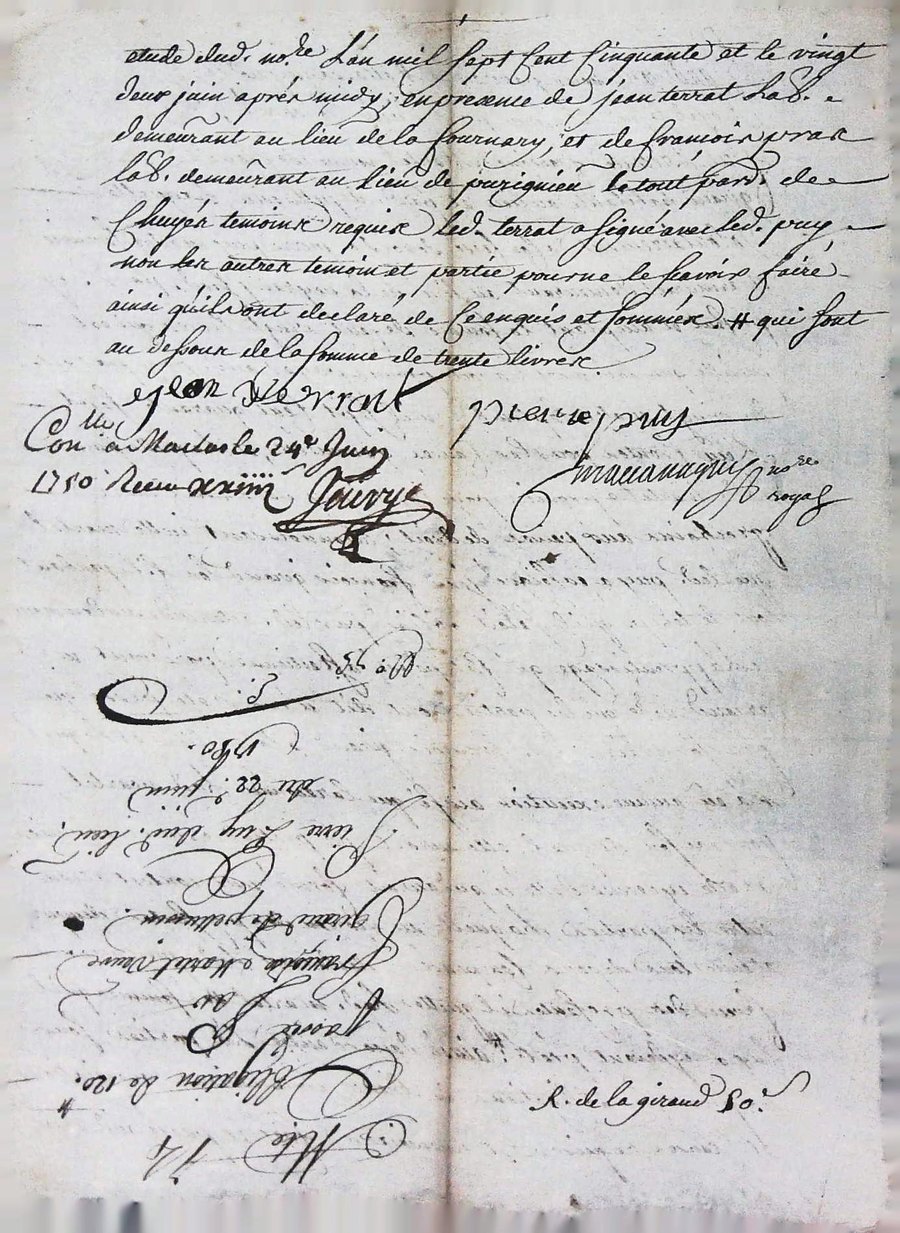 etude dud. no.re L'an mil sept Cent Cinquante et le vingt
deux juin aprés midy, en presence de jean terrat Lab.
demeurant au lieu de la fournary, et de francois prax
lab. demeurant au lieu de purignieu le tout par.
temoins requis led. terrat a signé avec led. puy
non les autres temoin et partie pour ne le scavoir faire
ainsi qu'ils ont declaré de Ce enquis et sommés. # qui sont
au dessous de la somme de trente livres
jean terrat
pierre puy
Con.lle a le 24e Juin
1750 Recu xxiiii s
no.re
royal
N.o 73.
Obligation de 120.#
pour
françoise martel veuve
giraud de
Pierre Puy dud. lieu.
du 22.e juin
1750.
R. de la giraud 50.s